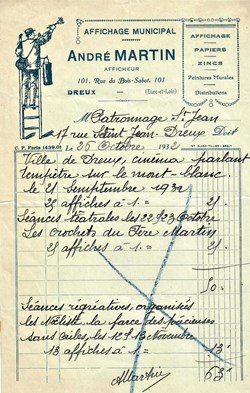 AFFICHAGE MUNICIPAL
ANDRÉ MARTIN
AFFICHEUR
101, Rue du Bois-Sabot, 101
DREUX (Eure-et-Loir)
AFFICHAGE
PAPIERS
ZINCS
Peintures Murales
Distributions
C. P. Paris 1429.01
M Patronnage St Jean
17 rue Saint Jean - Dreux Doit
le 26 Octobre 1932
Ville de Dreux, cinéma parlant
tempêtre sur le mont-blanc
le 21 Semptembre 1932
25 affiches à 1.= 25.
Séances téatrales les 22 & 23 Octobre
Les Crochets du Père Martin
25 affiches à 1.= 25.
50.
Séances régréatives, organisés
les Noëliste la farce des précieuses
sans ailes les 12 & 13 Novembre
13 affiches à 1.= 13
AMartin 63